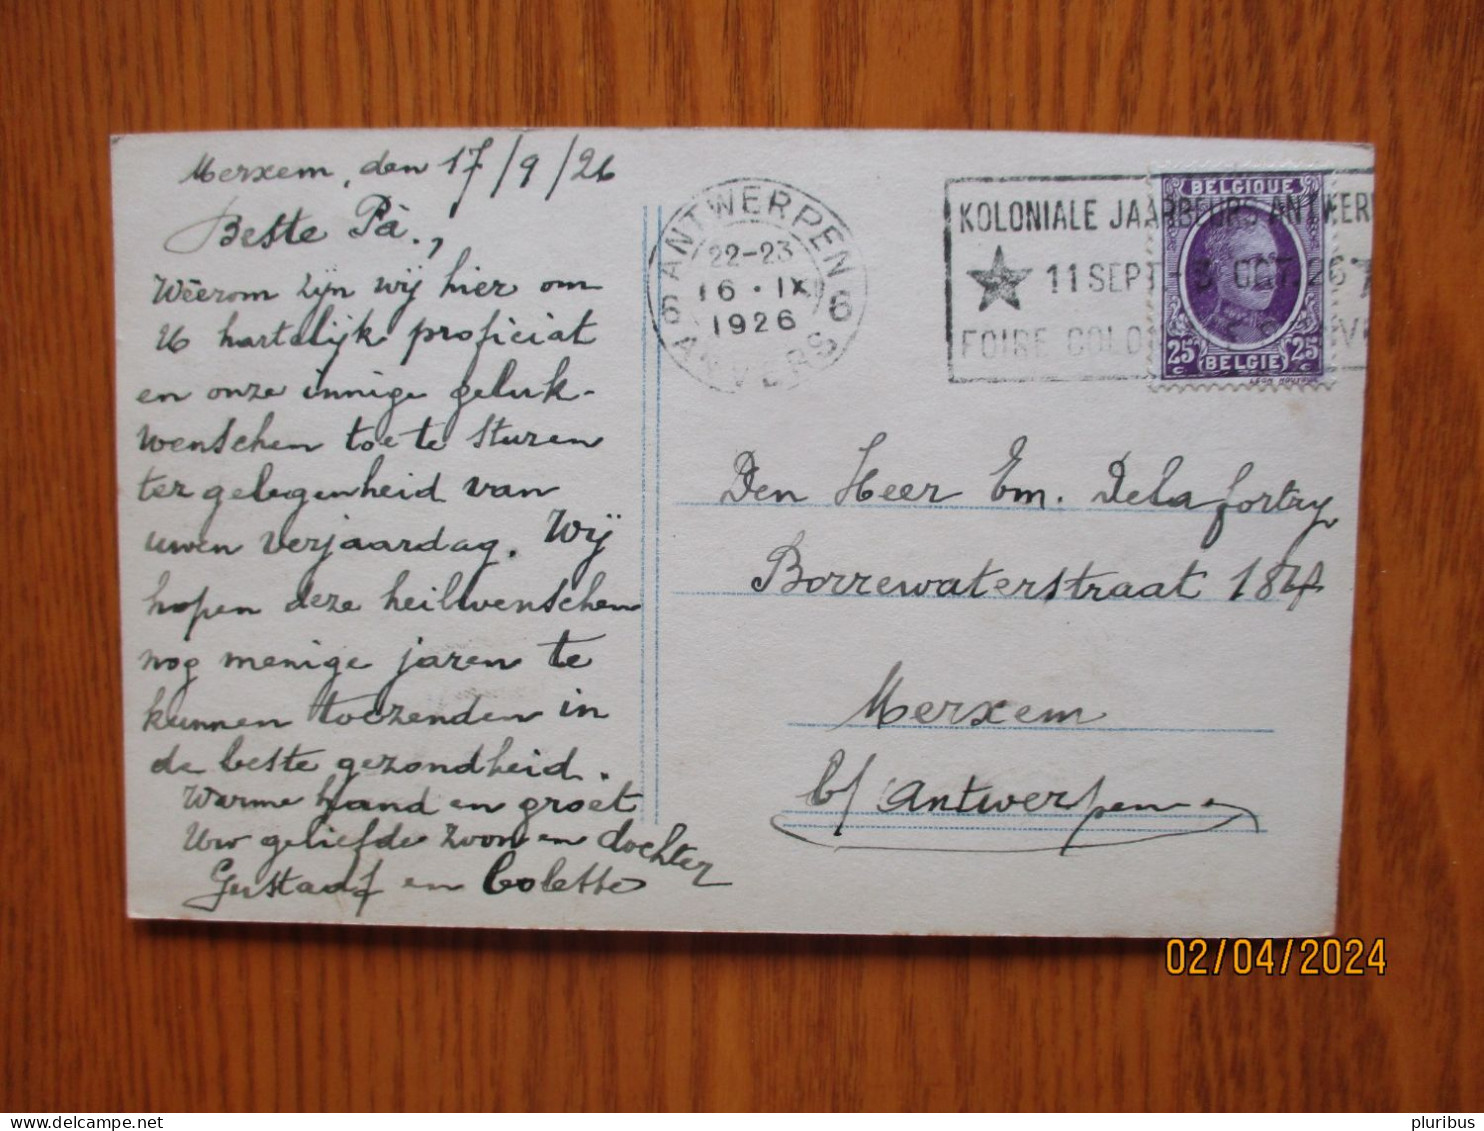 Merxem, den 17/9/26
Beste Pà.,
Wéerom zijn wij hier om
U hartelijk proficiat
en onze innige geluk-
wenschen toe te sturen
ter gelegenheid van
uwen verjaardag. Wij
hopen deze heilwenschen
nog menige jaren te
kunnen toezenden in
de beste gezondheid.
Warme hand en groet
Uw geliefde zoon en dochter
Gustaaf en Colette
ANTWERPEN
22-23
16·IX
1926
6 6
ANVERS
KOLONIALE JAARBEURS ANTWER
11 SEPT - 3 OCT 26
FOIRE COLON
BELGIQUE
25c 25c
BELGIE
LEON HOUYOUX
Den Heer Em. Delafortry
Borrewaterstraat 184
Merxem
b/ Antwerpen
02/04/2024
pluribus